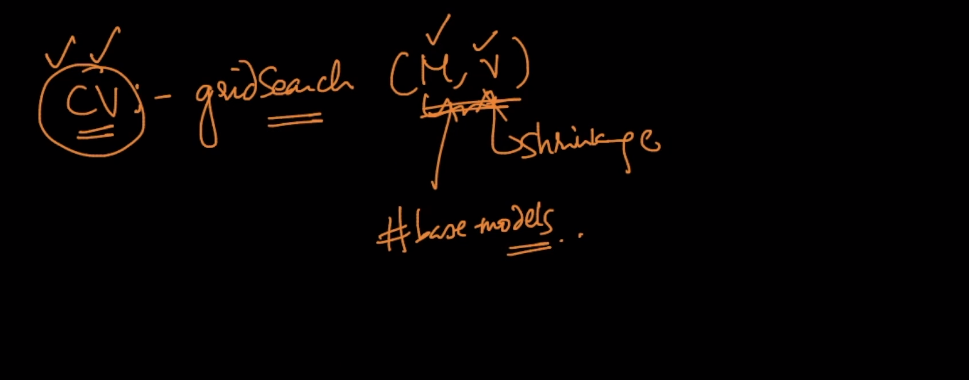 CV :- gridSearch (M, ν)
shrinkage
#base models..